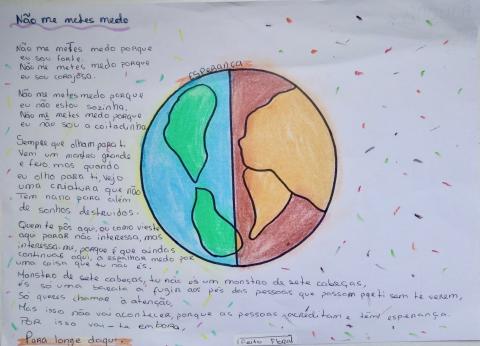 Não me metes medo
Não me metes medo porque
eu sou forte.
Não me metes medo porque
eu sou corajosa.
Não me metes medo porque
eu não estou sozinha.
Não me metes medo porque
eu não sou a coitadinha.
Sempre que olham para ti
Vem um monstro grande
e feio, mas quando
eu olho para ti, vejo
uma criatura que não
Tem nada para além
de sonhos destruidos.
Quem te pôs aqui, ou como vieste
aqui parar não interessa, mas
interessa-me, porque é que ainda
continuas aqui, a espalhar medo por
uma coisa que tu não és.
Monstro de sete cabeças, tu não és um monstro de sete cabeças,
és só uma barata a fugir aos pés das pessoas que passam por ti sem te verem,
Só queres chamar à atenção,
Mas isso não vai acontecer, porque as pessoas acreditam e têm esperança.
Por isso vai-te embora,
Para longe daqui.
ESPERANÇA